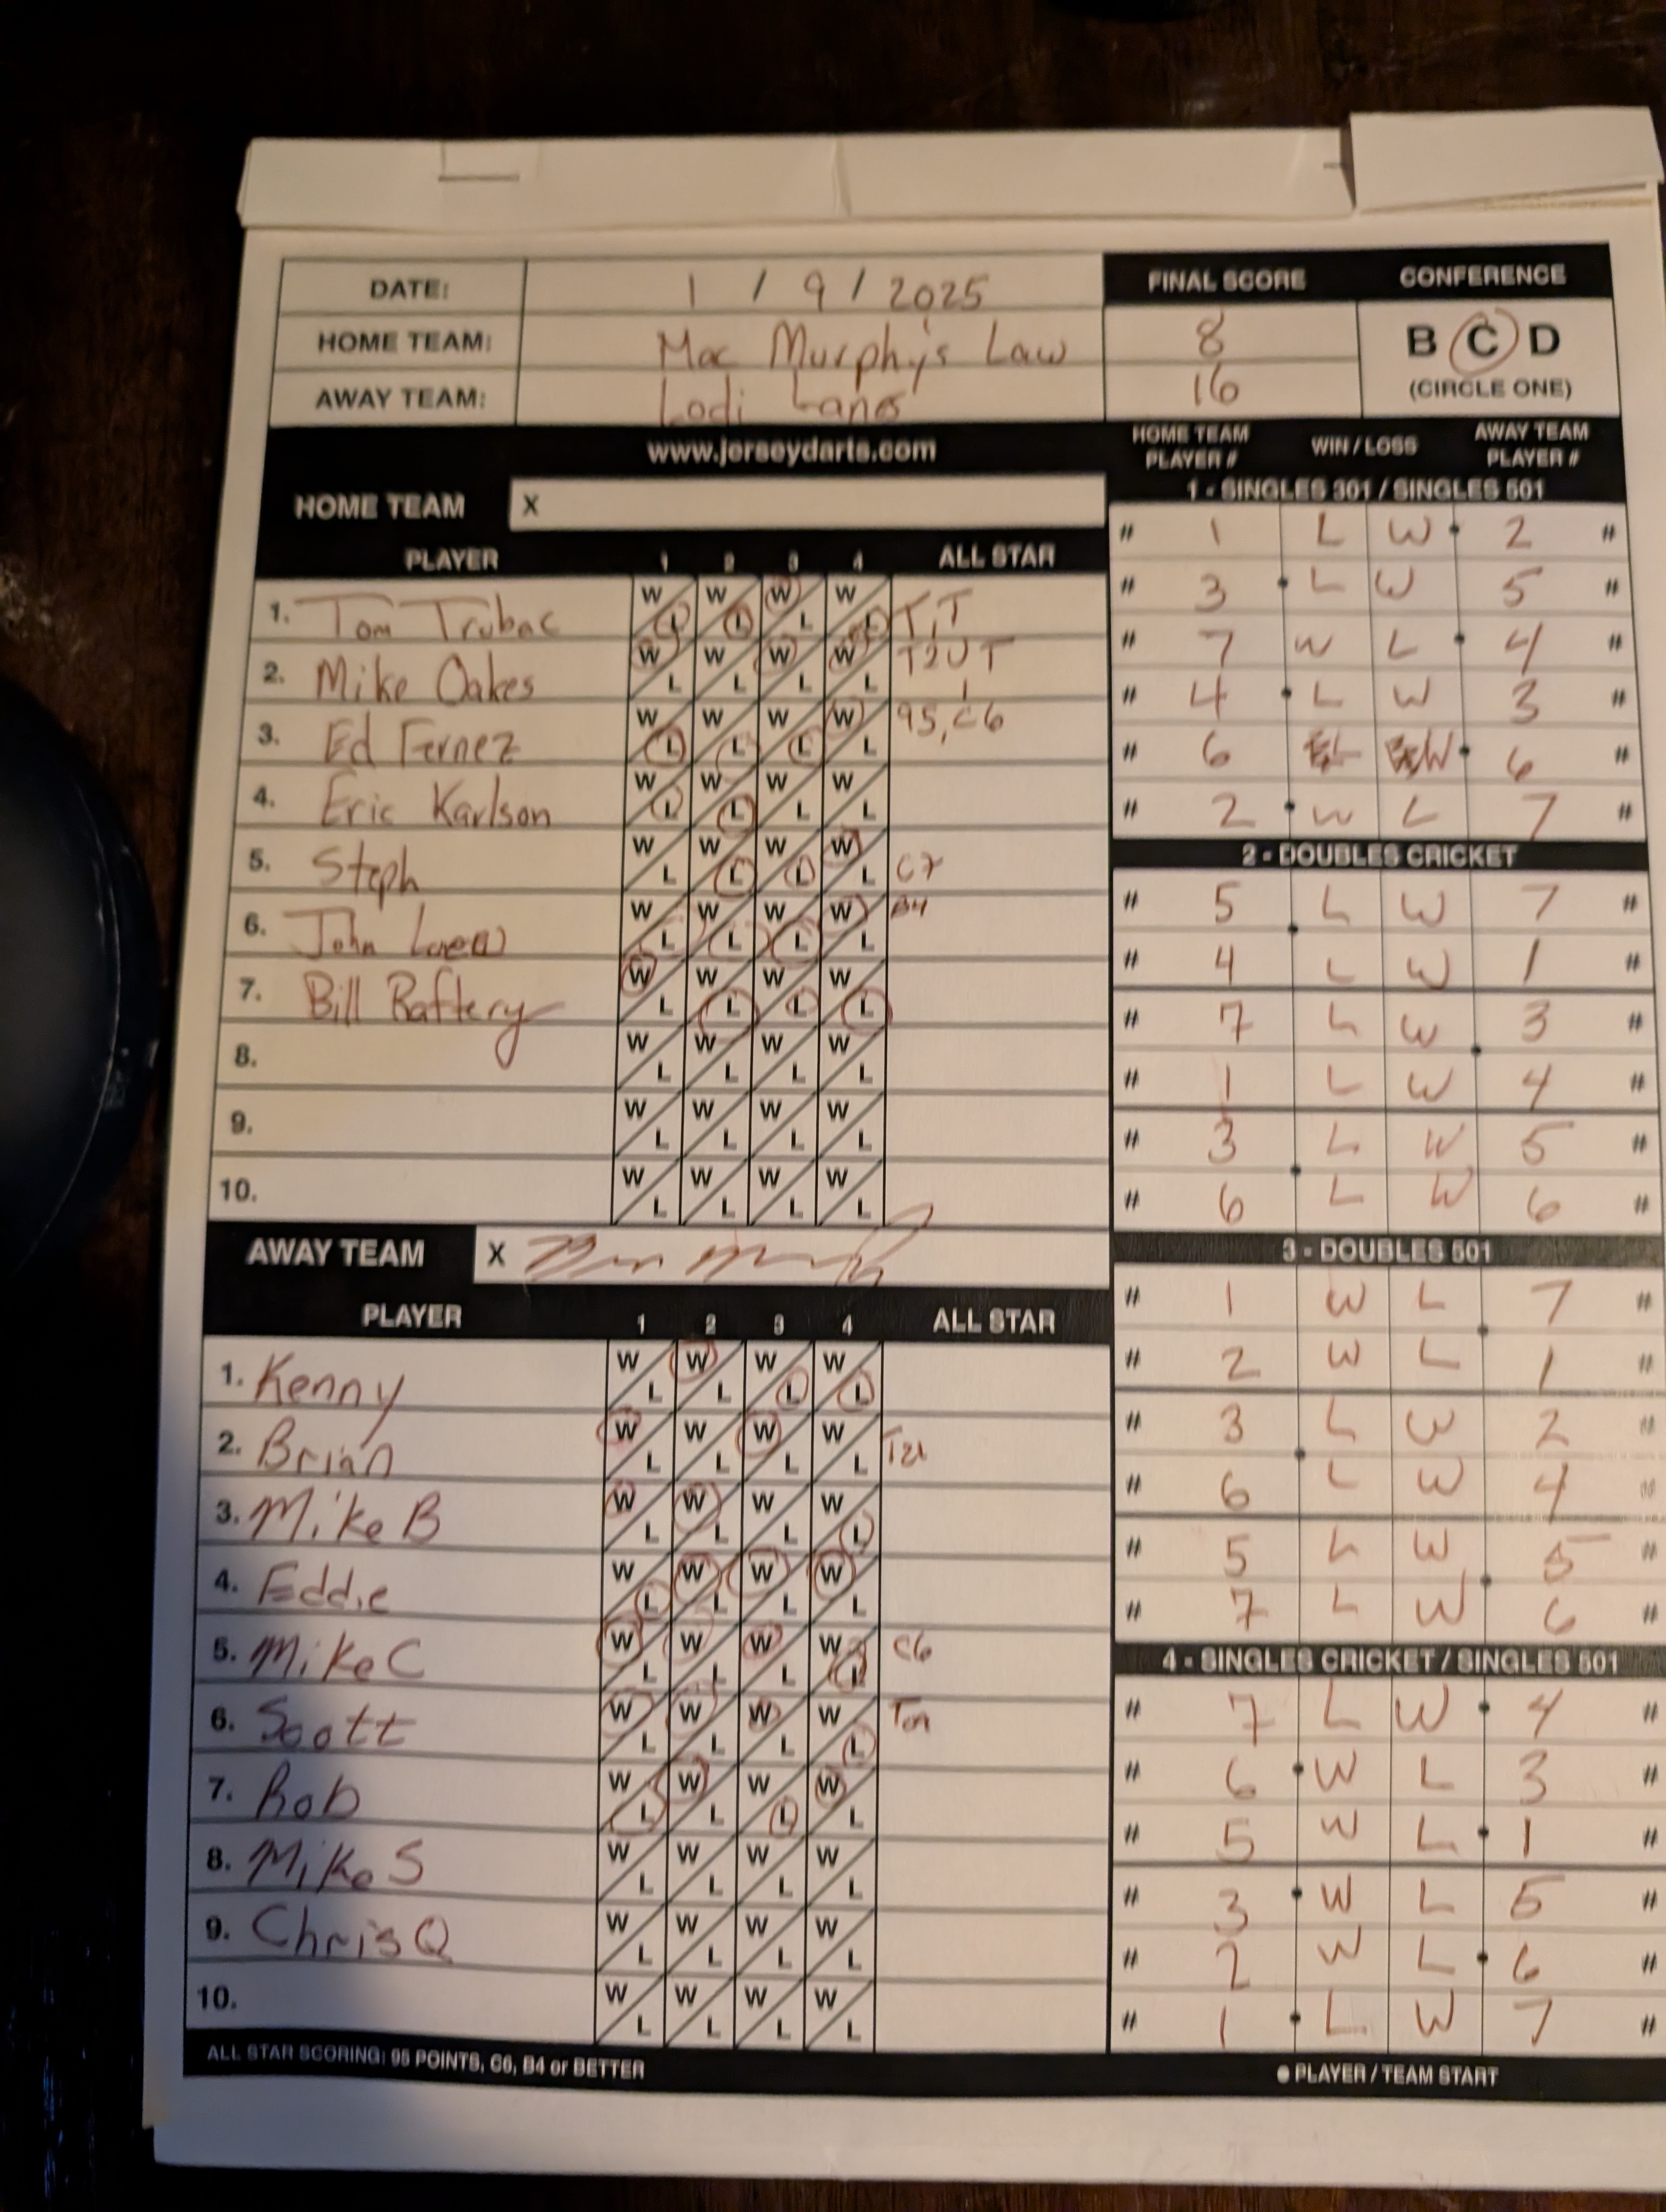 DATE: 1 / 9 / 2025
HOME TEAM: Mac Murphy's Law
AWAY TEAM: Lodi Lanes
FINAL SCORE
8
16
CONFERENCE
B C D
(CIRCLE ONE)
www.jerseydarts.com
HOME TEAM X
PLAYER 1 2 3 4 ALL STAR
1. Tom Trubac W L W L W L W L T, T
2. Mike Oakes W L W L W L W L
3. Ed Fernez W L W L W L W L 95, C6
4. Eric Karlson W L W L W L W L
5. Steph W L W L W L W L C7
6. John W L W L W L W L B4
7. Bill Raftery W L W L W L W L
8. W L W L W L W L
9. W L W L W L W L
10. W L W L W L W L
AWAY TEAM X
PLAYER 1 2 3 4 ALL STAR
1. Kenny W L W L W L W L
2. Brian W L W L W L W L T21
3. Mike B W L W L W L W L
4. Eddie W L W L W L W L
5. Mike C W L W L W L W L C6
6. Scott W L W L W L W L Ton
7. Rob W L W L W L W L
8. Mike S W L W L W L W L
9. Chris Q W L W L W L W L
10. W L W L W L W L
ALL STAR SCORING: 95 POINTS, C6, B4 or BETTER
HOME TEAM PLAYER # WIN / LOSS AWAY TEAM PLAYER #
1 - SINGLES 301 / SINGLES 501
# 1 L W 2 #
# 3 L W 5 #
# 7 W L 4 #
# 4 L W 3 #
# 6 L W 6 #
# 2 W L 7 #
2 - DOUBLES CRICKET
# 5 L W 7 #
# 4 L W 1 #
# 7 L W 3 #
# 1 L W 4 #
# 3 L W 5 #
# 6 L W 6 #
3 - DOUBLES 501
# 1 W L 7 #
# 2 W L 1 #
# 3 L W 2 #
# 6 L W 4 #
# 5 L W 5 #
# 7 L W 6 #
4 - SINGLES CRICKET / SINGLES 501
# 7 L W 4 #
# 6 W L 3 #
# 5 W L 1 #
# 3 W L 5 #
# 2 W L 6 #
# 1 L W 7 #
PLAYER / TEAM START